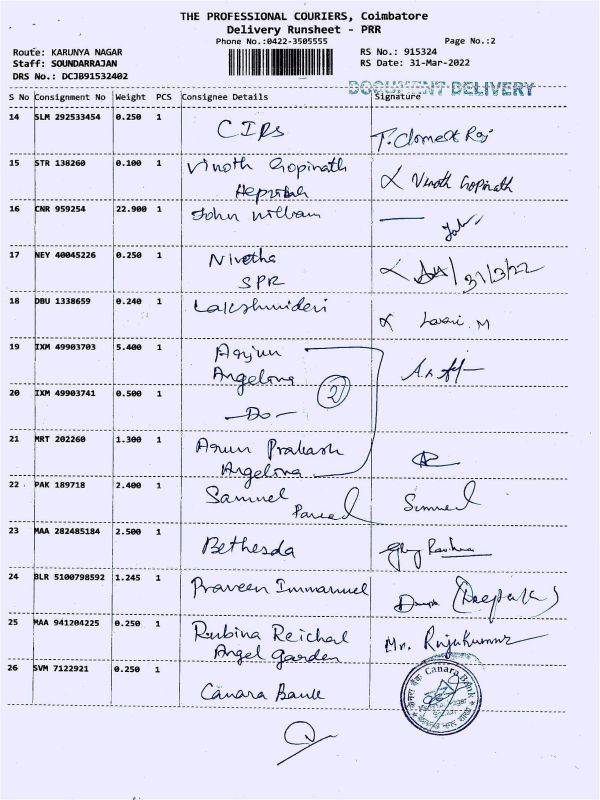 THE PROFESSIONAL COURIERS, Coimbatore
Delivery Runsheet - PRR
Phone No.:0422-3505555
Page No.:2
Route: KARUNYA NAGAR
RS No.: 915324
Staff: SOUNDARRAJAN
RS Date: 31-Mar-2022
DRS No.: DCJB91532402
DOCUMENT DELIVERY
S No Consignment No Weight PCS Consignee Details Signature
14 SLM 292533454 0.250 1 CIRS
15 STR 138260 0.100 1 Vinoth Gopinath Vinoth Gopinath
16 CNR 959254 22.900 1 John William
17 NEY 40045226 0.250 1 Nivetha 31/3/22
SPR
18 DBU 1338659 0.240 1 Lakshmidevi
19 IXM 49903703 5.400 1 Arjun
Angelina
20 IXM 49903741 0.500 1 -Do- 2
21 MRT 202260 1.300 1 Arun Prakash
Angelina
22 PAK 189718 2.400 1 Samuel Samuel
23 MAA 282485184 2.500 1 Bethesda
24 BLR 5100798592 1.245 1 Praveen Immanuel (Deepak)
25 MAA 941204225 0.250 1 Rubina Reichal Mr. Rajukumar
Angel Garden
26 SVM 7122921 0.250 1 Canara Bank
Canara Bank